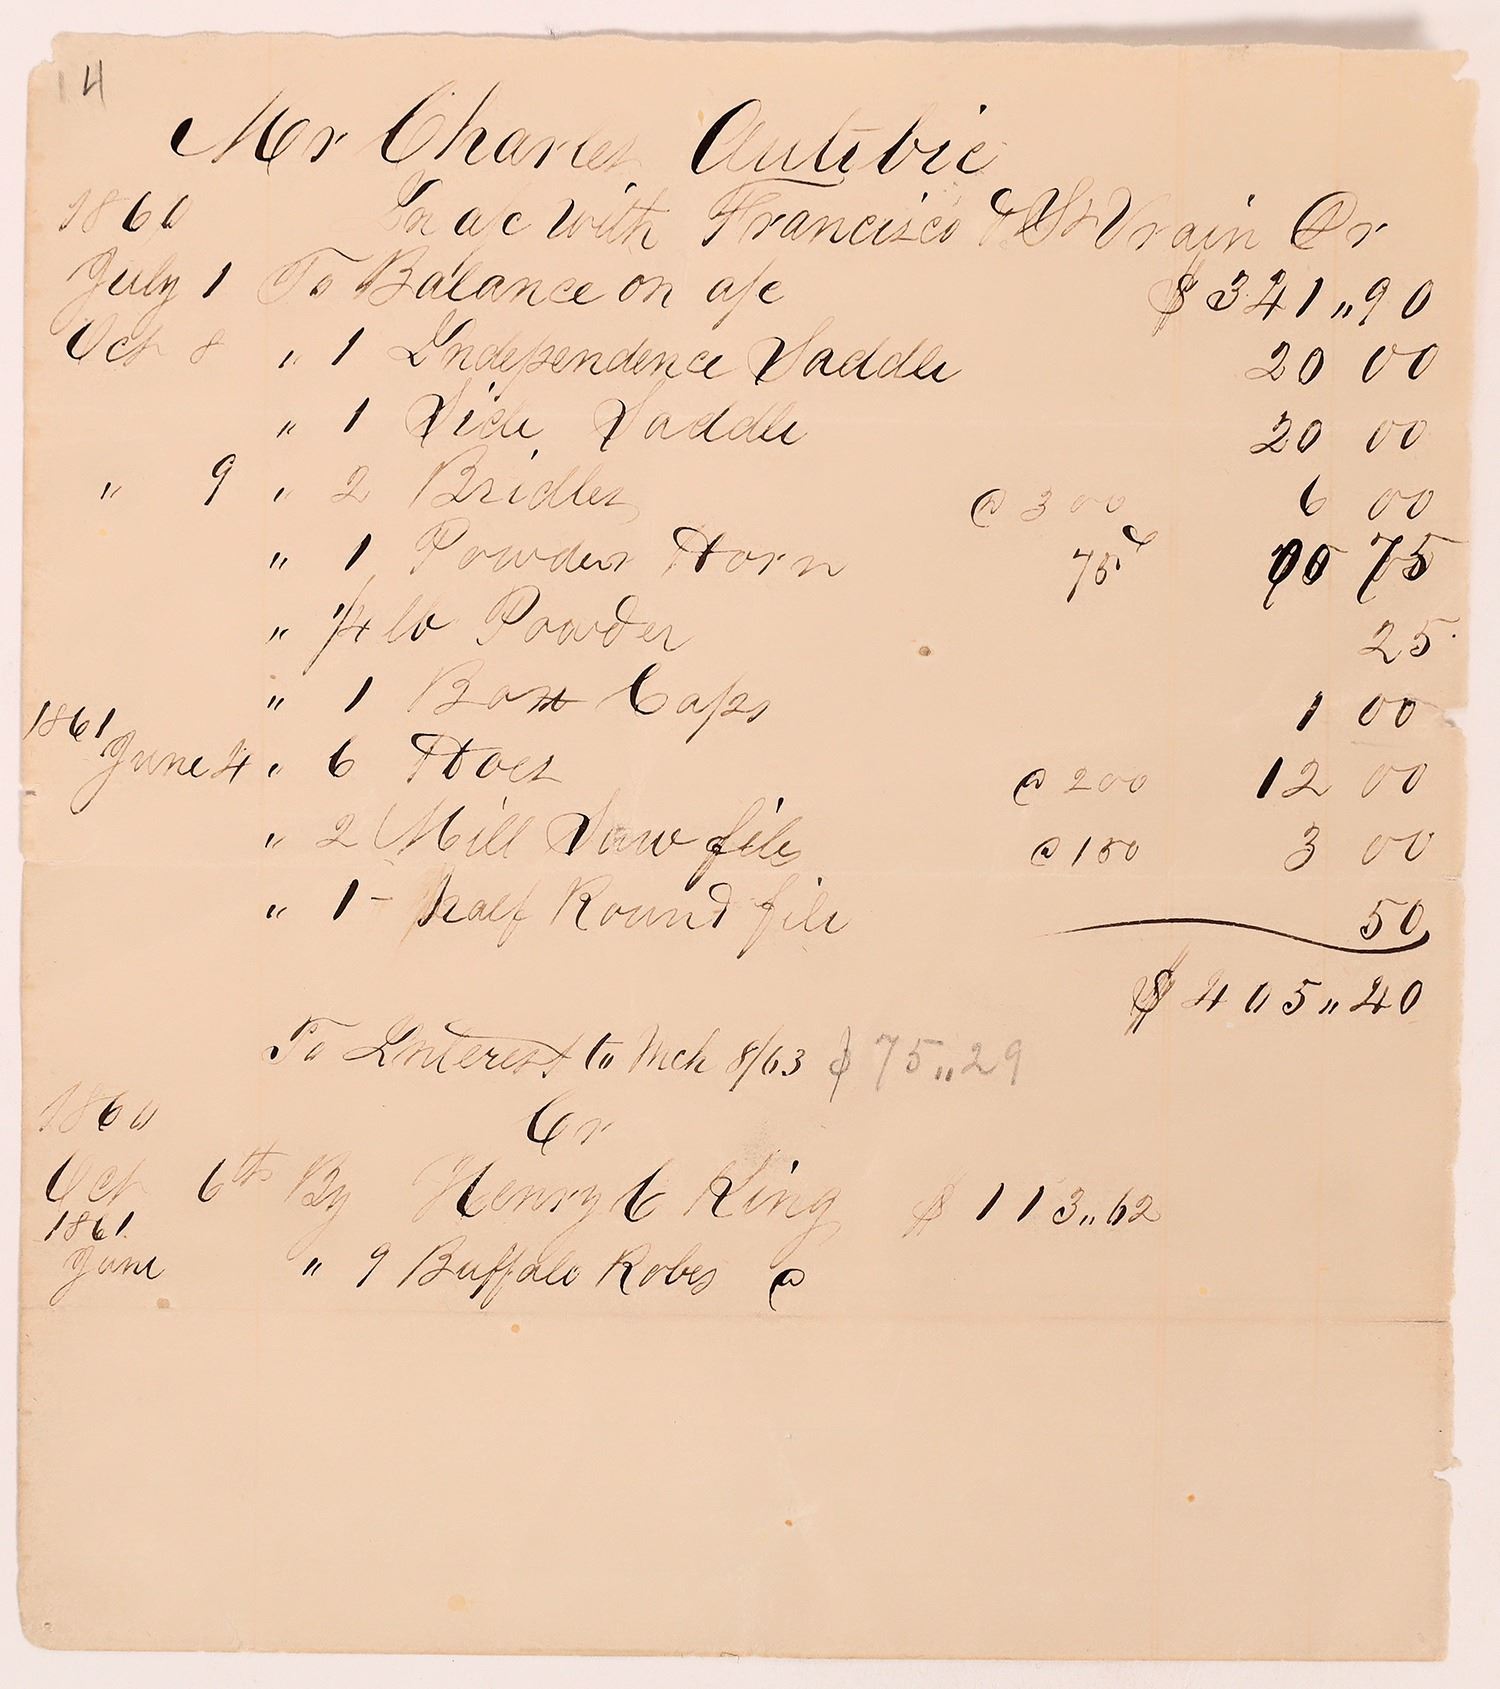 14
Mr Charles Autibie
1860 In a/c with Francisco & St Vrain Dr
July 1 To Balance on a/c $341„90
Oct 8 „ 1 Independence Saddle 20 00
„ 1 Side Saddle 20 00
„ 9 „ 2 Bridles @ 300 6 00
„ 1 Powder Horn 75c 75
„ 1/4 lb Powder 25
„ 1 Box Caps 1 00
1861
June 4 „ 6 Hoes @ 200 12 00
„ 2 Mill Saw files @ 150 3 00
„ 1 - half Round file 50
$405„40
To Interest to Mch 8/63 $75„29
1860 Cr
Oct 6th By Henry C King $113„62
1861
June „ 9 Buffalo Robes @